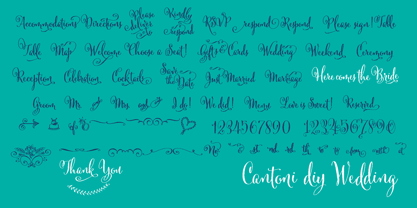 Accommodations Directions Please Deliver Kindly respond RSVP respond Respond Please sign! Table
Table Map Welcome Choose a Seat! Gifts & Cards Wedding Weekend Ceremony
Reception Celebration Cocktails Save the Date Just Married Marriage Here comes the Bride
Groom Mr. & Mrs. and I do! We did! Menu Love is Sweet! Reserved
1234567890 1234567890
Thank You
Cantoni diy Wedding